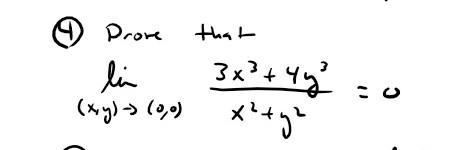 ④ Prove that
lim (x,y)→(0,0) (3x³+4y³)/(x²+y²) = 0